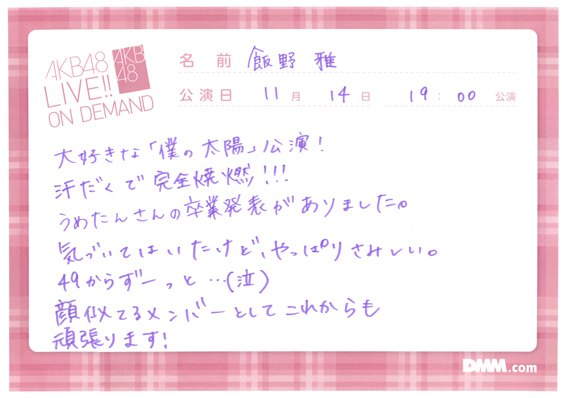 AKB48
LIVE!!
ON DEMAND
AKB
48
名前 飯野 雅
公演日 11月 14日 19:00 公演
大好きな「僕の太陽」公演!
汗だくで完全燒燃!!!
うめたんさんの卒業発表がありました。
気づいてはいたけど、やっぱりさみしい。
49からずーっと…(泣)
顔似てるメンバーとしてこれからも
頑張ります!
DMM.com